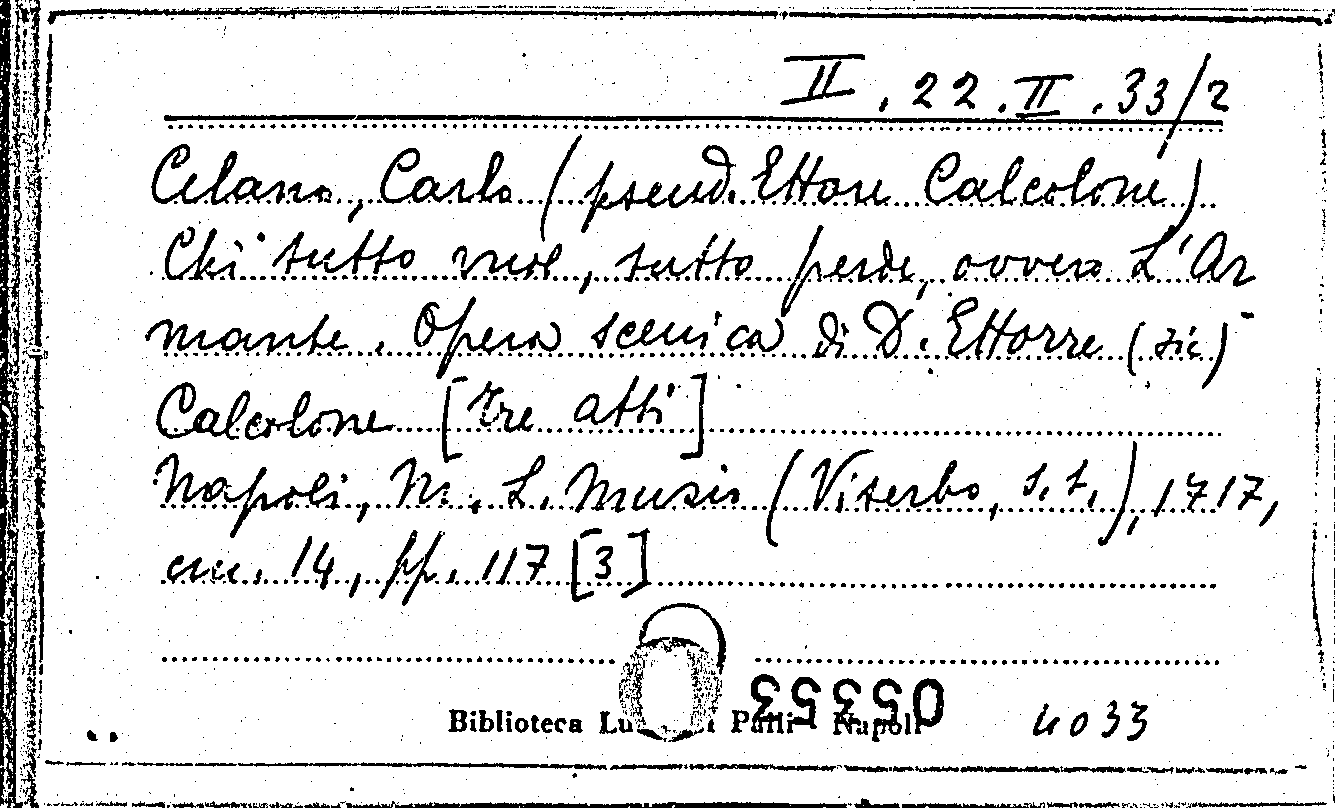 II. 22. II. 33/2
Celano, Carlo (pseud. Ettore Calcolone)
Chi tutto vuol, tutto perde, ovvero L'Ar
mante. Opera scenica di D. Ettorre (sic)
Calcolone [tre atti]
Napoli, M. L. Muzio (Viterbo, s.t.), 1717,
cm. 14, pp. 117 [3]
05353
Biblioteca Lu Palli - Napoli 4033